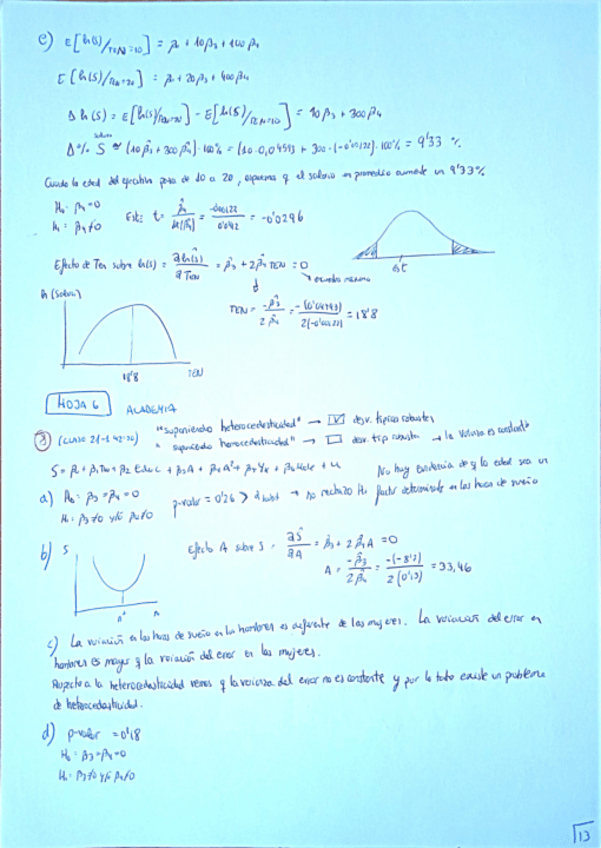 e) E[ln(S)/TEN=10] = β₂ + 10β₃ + 100β₄
E[ln(S)/TEN=20] = β₂ + 20β₃ + 400β₄
Δ ln(S) = E[ln(S)/TEN=20] - E[ln(S)/TEN=10] = 10β₃ + 300β₄
Δ% S ≈ (10β̂₃ + 300β̂₄)·100% = (10·0,04593 + 300·(-0'00122))·100% = 9'33 %
Cuando la edad del ejecutivo pasa de 10 a 20, esperamos q el salario en promedio aumente un 9'33%
H₀: β₄=0
H₁: β₄≠0
Est: t = = -0'0296
est
Efecto de Ten sobre ln(s) = ∂ln(s)/∂TEN = β̂₃ + 2β̂₄ TEN = 0
TEN = -β̂₃/2β̂₄ = = 18'8
18'8
TEN
HOJA 6 ACADEMIA
③ "suponiendo heterocedasticidad" → ☑ desv. típicas robustas
" suponiendo homocedasticidad" → ☐ desv. tip robusta → la varianza es constante
a) H₀: β₃=β₄=0
H₁: β₃≠0 y/o β₄≠0
p-valor = 0'26 > → no rechazo H₀
No hay evidencia de q la edad sea un
factor determinante en las horas de sueño
b) S
Efecto A sobre S = ∂S/∂A = β₃ + 2β₄A = 0
A = -β̂₃/2β̂₄ = -(-8'7)/2(0'13) = 33,46
c) La variación en las horas de sueño en los hombres es diferente de las mujeres. La variación del error en
hombres es mayor q la variación del error en las mujeres.
Respecto a la heterocedasticidad vemos q la varianza del error no es constante y por lo tanto existe un problema
de heterocedasticidad.
d) p-valor = 0'18
H₀: β₃=β₄=0
H₁: β₃≠0 y/o β₄≠0
13